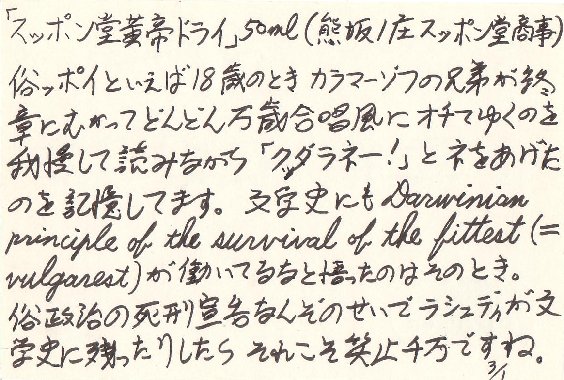 「スッポン堂黄帝ドライ」50ml(熊坂/庄スッポン堂商事)
俗ッポイといえば18歳のときカラマーゾフの兄弟が終
章にむかってどんどん万歳合唱風にオチてゆくのを
我慢して読みながら「クダラネー!」とネをあげた
のを記憶してます。文学史にもDarwinian
principle of the survival of the fittest (=
vulgarest)が働いてるなと悟ったのはそのとき。
俗政治の死刑宣告なんぞのせいでラシュディが文
学史に残ったりしたらそれこそ笑止千万ですね。
3/1